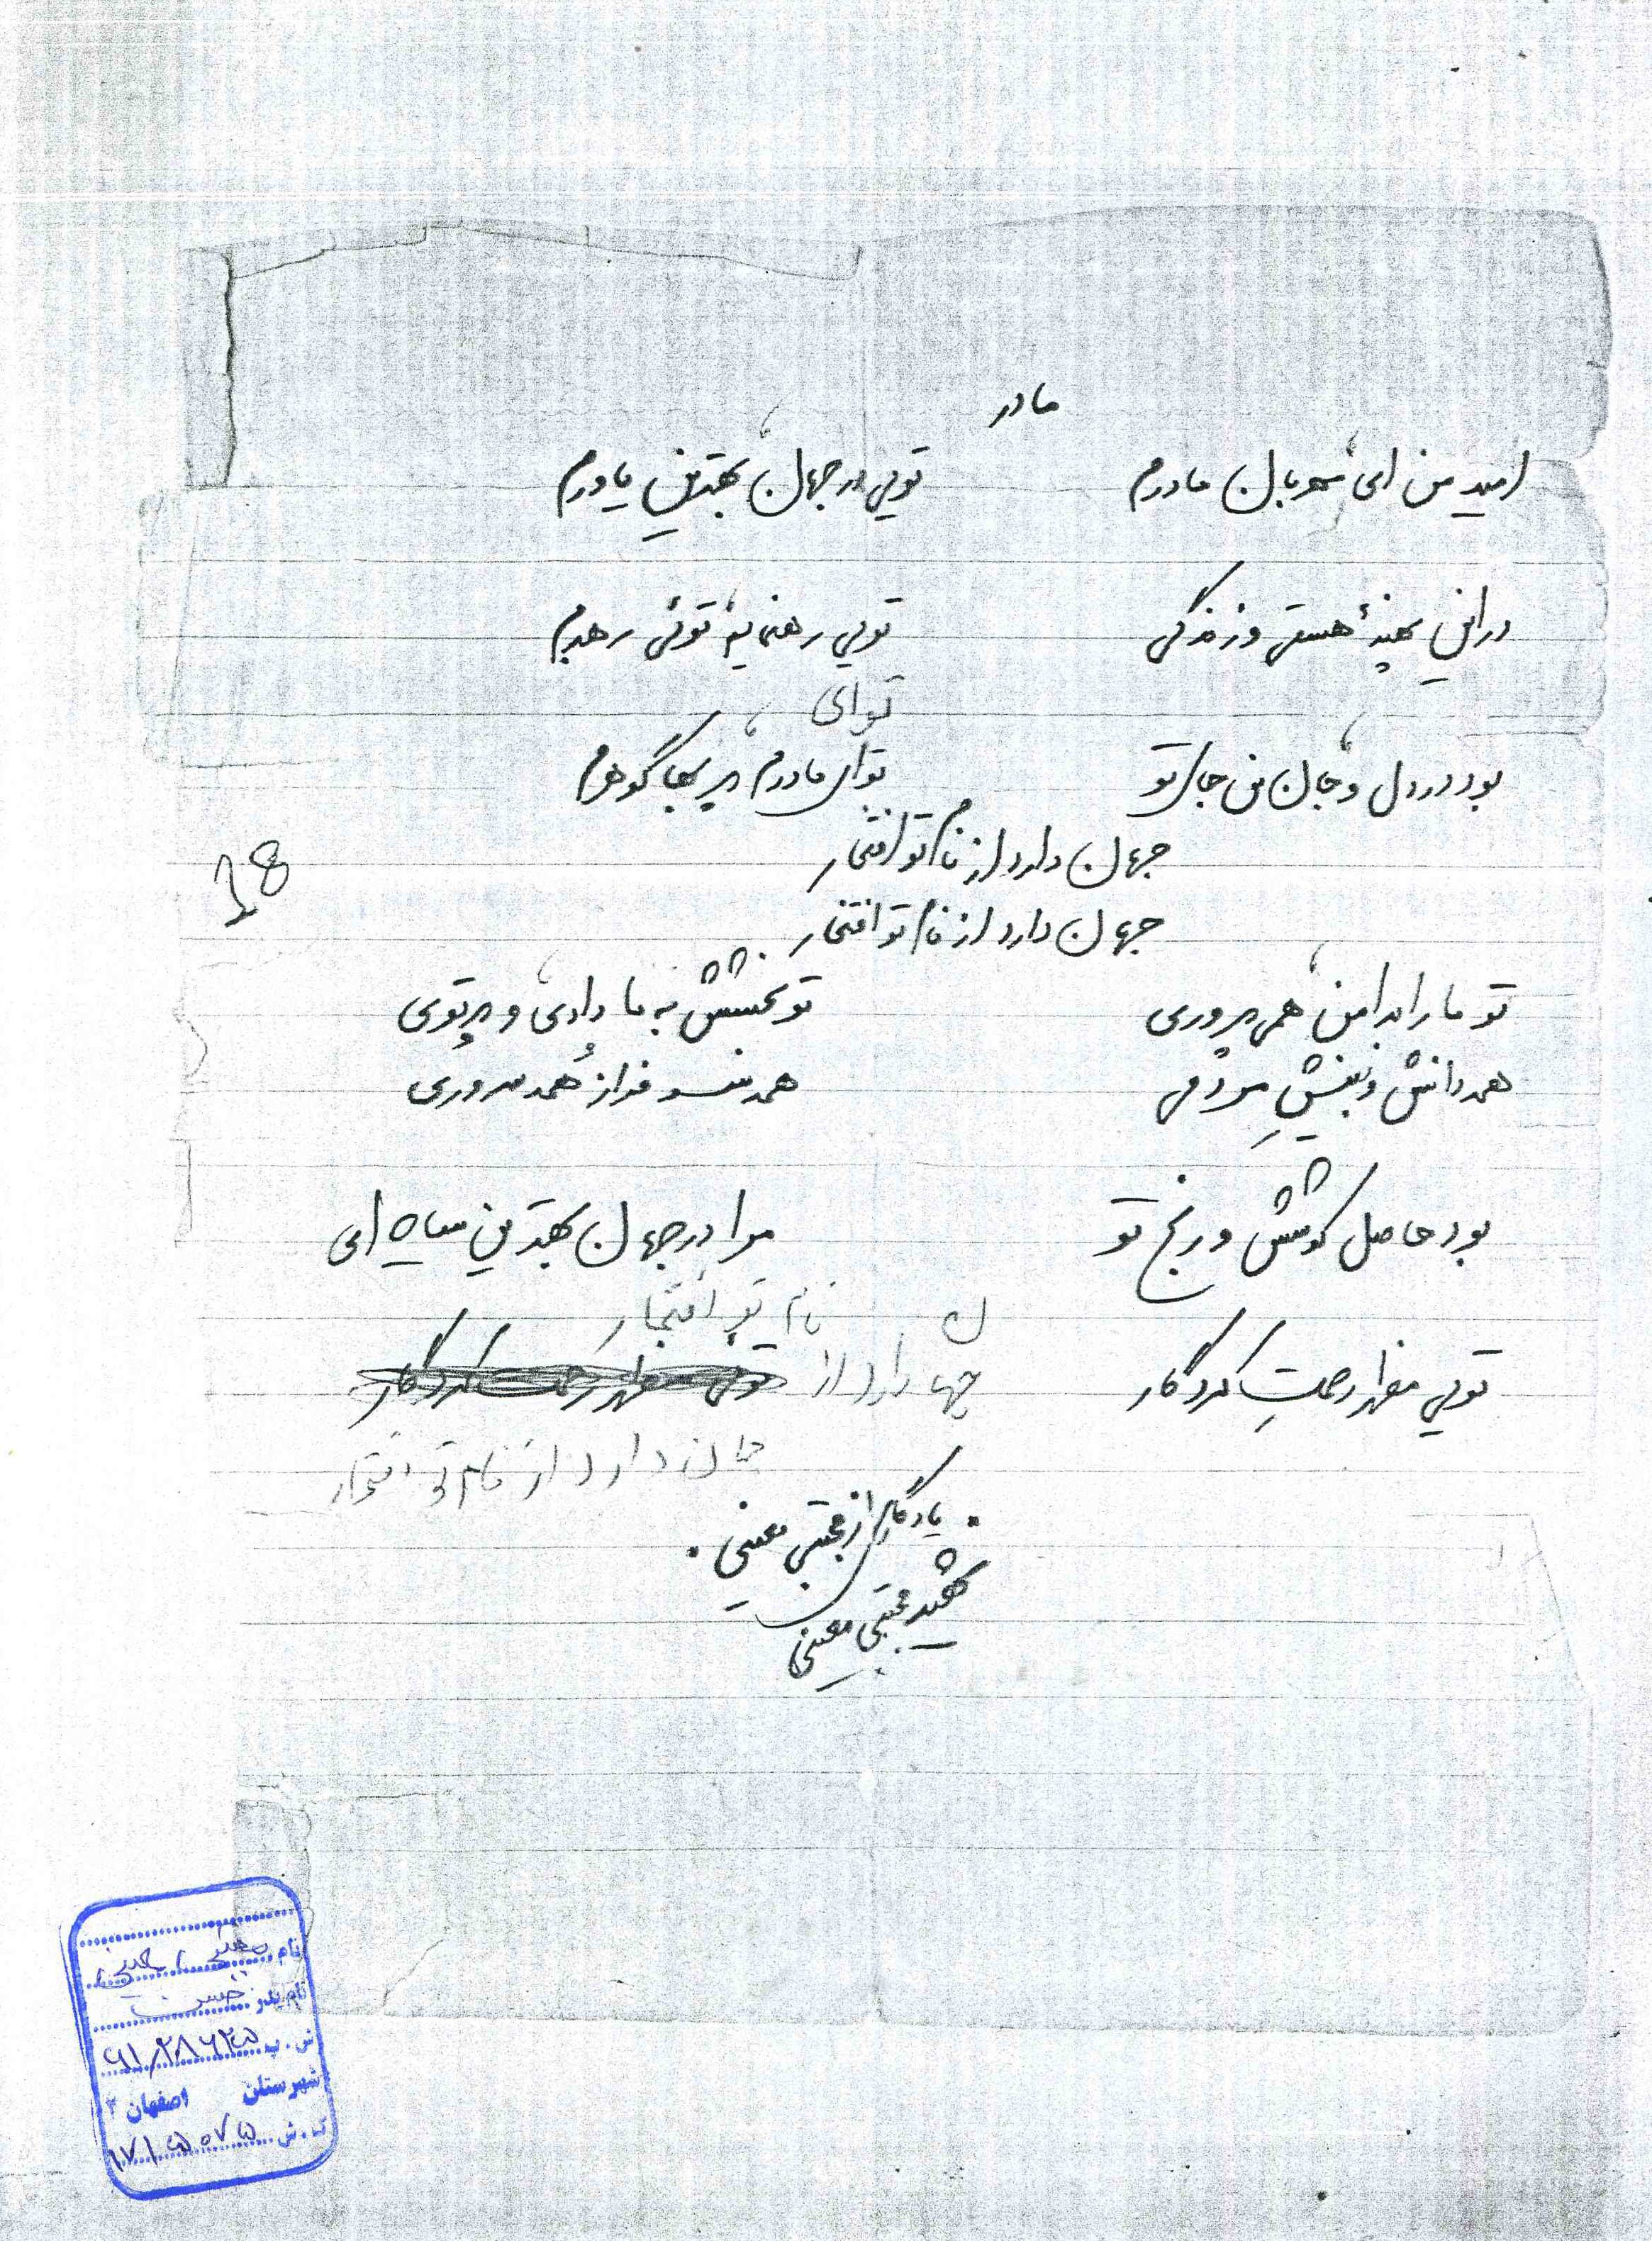 مادر
امید من ای مهربان مادرم توئی در جهان بهترین یاورم
در این پهنهٔ هستی و زندگی توئی رهنمایم توئی رهبرم
تو ای
بود در دل و جان من جای تو تو ای مادرم پر بها گوهرم
جهان دارد از نام تو افتخار
جهان دارد از نام تو افتخار
تو ما را به دامن همی پروری تو بخشش به ما دادی و برتری
همه دانش و بینش مردمی همه سرفراز همه سروری
بود حاصل کوشش و رنج تو مرا در جهان بهترین سایه ای
نام تو افتخار
توئی مظهر رحمتِ کردگار جهان دارد از توئی مظهر رحمت کردگار
جهان دارد از نام تو افتخار
یادگاری از مجتبی معینی
شهید مجتبی معینی
18
نام مجتبی معینی
نام پدر حسن
ش.پ ۶۱/۲۸۶۲۵
شهرستان اصفهان ۲
ک.ش ۱۷۱۵۰۷۵